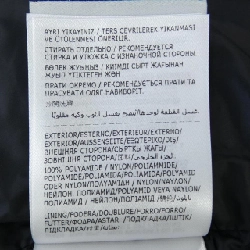 AYRI YIKAYINIZ / TERS ÇEVRİLEREK YIKANMASI
VE ÜTÜLENMESİ ÖNERİLİR.
СТИРАТЬ ОТДЕЛЬНО / РЕКОМЕНДУЕТСЯ
СТИРКА И УТЮЖКА С ИЗНАНОЧНОЙ СТОРОНЫ
БӨЛЕК ЖУЫҢЫЗ / КИІМДІ СЫРТ ЖАҒЫНАН
ЖУЫП ҮТІКТЕГЕН ЖӨН
ПРАТИ ОКРЕМО / РЕКОМЕНДУЄТЬСЯ ПРАТИ ТА
ПРАСУВАТИ ОДЯГ НАВИВОРІТ.
EXTERIOR/ESTERNO/EXTERIEUR/EXTERNO/
EXTERIOR/AUSSENSEITE/ΕΞΩΤΕΡΙΚΟ/DIŞ/
ВНЕШНЯЯ СТОРОНА/СЫРТҚЫ ЖАҒЫ/
ЗОВНІШНЯ СТОРОНА/
100% POLYAMIDE / NYLON/POLIAMMIDE/
POLYAMIDE/POLIAMIDA/POLIAMIDA/POLYAMID
ODER NYLON/ΠΟΛΥΑΜΙΔΗ / NYLON/
NAYLON/POLİAMİD/POLYAMİD VEYA NAYLON/
ПОЛИАМИД / НЕЙЛОН/ПОЛИАМИД/
ПОЛІАМІД / НЕЙЛОН/
LINING/FODERA/DOUBLURE/FORRO/FORRO/
FUTTER/ΦΟΔΡΑ/ASTAR/ПОДКЛАДКА/